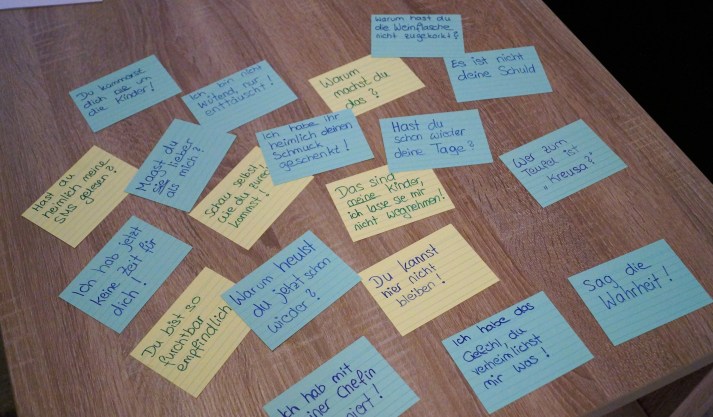 Warum hast du
die Weinflasche
nicht zugekorkt?
Es ist nicht
deine Schuld
Du kümmerst
dich nie um
die Kinder!
Ich bin nicht
wütend nur
enttäuscht!
Warum
machst du
das?
Ich habe ihr
heimlich deinen
Schmuck
geschenkt!
Hast du
schon wieder
deine Tage?
Wer zum
Teufel ist
„Kreusa?"
Hast du
heimlich meine
SMS gelesen?
Magst du
sie lieber
als mich?
Schau selbst!
wie du zurecht
kommst!
Das sind
meine Kinder,
ich lasse sie mir
nicht wegnehmen!
Ich hab jetzt
keine Zeit für
dich!
Warum heulst
du jetzt schon
wieder?
Du kannst
hier nicht
bleiben!
Sag die
Wahrheit!
Du bist so
furchtbar
empfindlich
Ich habe das
Gefühl, du
verheimlichst
mir was!
Ich hab mit
Chefin